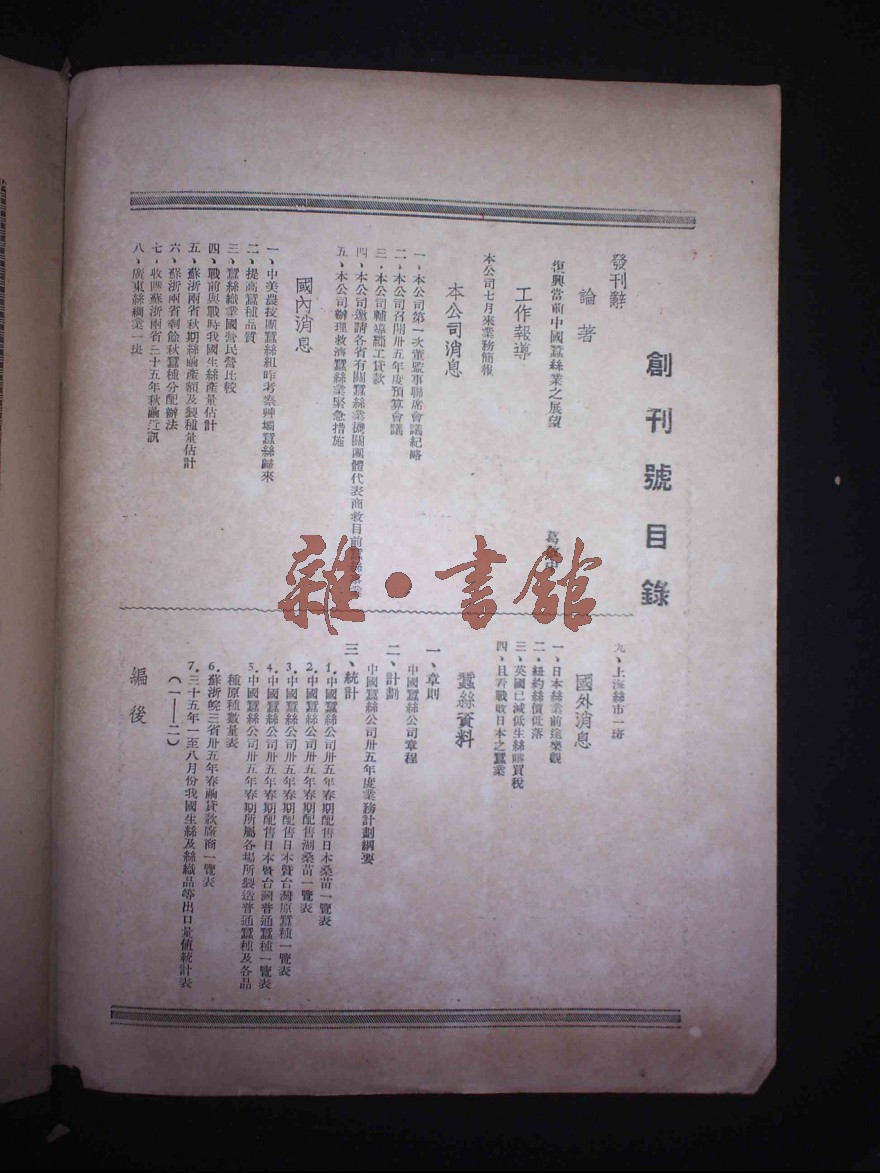 創刊號目錄
發刊辭
論著
復興當前中國蠶絲業之展望
工作報導
本公司七月來業務簡報
本公司消息
一、本公司第一次董監事聯席會議紀略
二、本公司召開卅五年度預算會議
三、本公司輔導繅工貸款
四、本公司邀請各省有關蠶絲業機關團體代表商救目前
五、本公司辦理救濟蠶絲業緊急措施
國內消息
一、中美農技團蠶絲組昨考察 蠶絲歸來
二、提高蠶種品質
三、蠶絲織業國營民營比較
四、戰前與戰時我國生絲產量估計
五、蘇浙兩省秋期絲繭產額及製種量估計
六、蘇浙兩省剩餘秋蠶種分配辦法
七、收 蘇浙兩省三十五年秋繭近訊
八、廣東絲綢業一斑
九、上海絲市一斑
國外消息
一、日本絲業前途樂觀
二、紐約絲價低落
三、英國已減低生絲購買稅
四、且看戰敗日本之蠶業
蠶絲資料
一、章則
中國蠶絲公司章程
二、計劃
中國蠶絲公司卅五年度業務計劃綱要
三、統計
1.中國蠶絲公司卅五年春期配售日本桑苗一覽表
2.中國蠶絲公司卅五年春期配售湖桑苗一覽表
3.中國蠶絲公司卅五年春期配售日本暨台灣原蠶種一覽表
4.中國蠶絲公司卅五年春期配售日本暨台灣普通蠶種一覽表
5.中國蠶絲公司卅五年春期所屬各場所製造普通蠶種及各品
種原種數量表
6.蘇浙皖三省卅五年春繭貸款廠商一覽表
7.三十五年一至八月份我國生絲及絲織品等出口量值統計表
(一——二)
編後
雜·書館